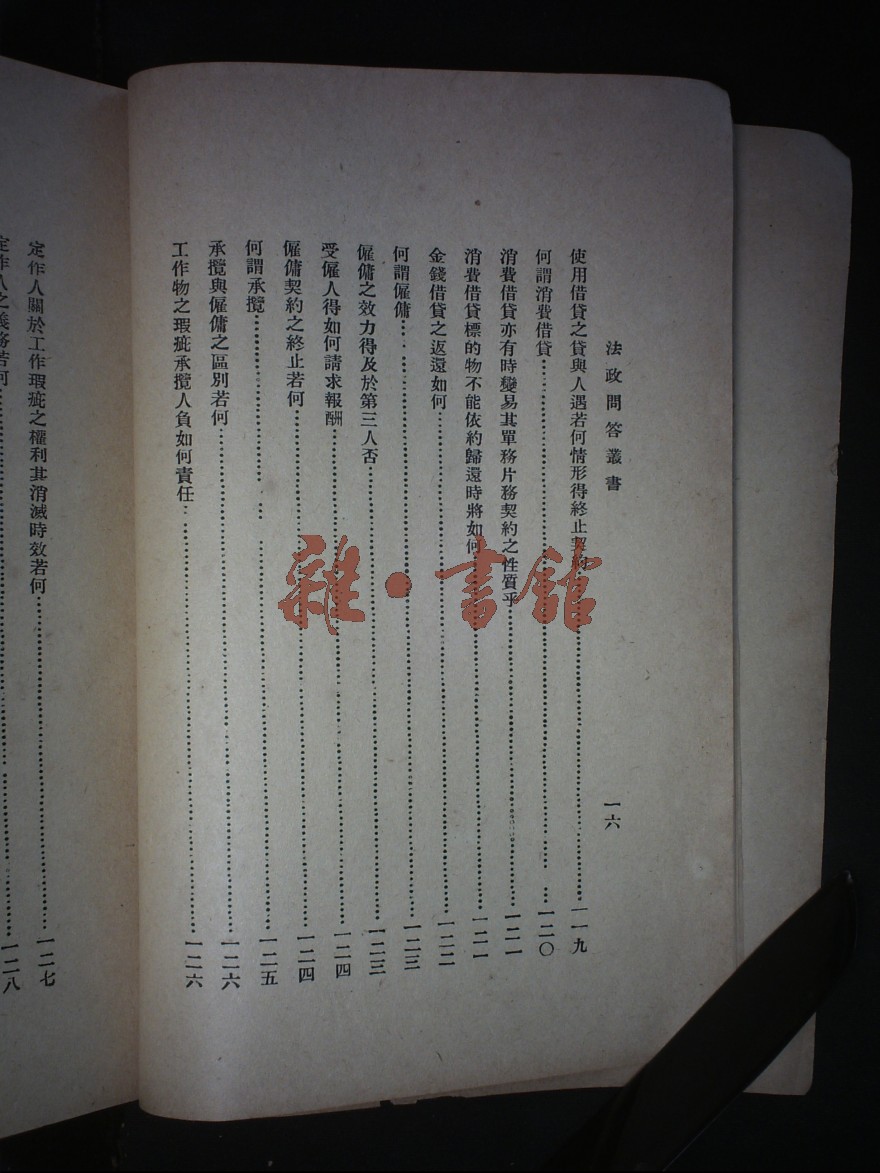 法政問答叢書 一六
使用借貸之貸與人遇若何情形得終止契約……一一九
何謂消費借貸……一二〇
消費借貸亦有時變易其單務片務契約之性質乎……一二一
消費借貸標的物不能依約歸還時將如何……一二一
金錢借貸之返還如何……一二二
何謂僱傭……一二三
僱傭之效力得及於第三人否……一二三
受僱人得如何請求報酬……一二四
僱傭契約之終止若何……一二四
何謂承攬……一二五
承攬與僱傭之區別若何……一二六
工作物之瑕疵承攬人負如何責任……一二六
定作人關於工作瑕疵之權利其消滅時效若何……一二七
定作人之義務若何……一二八
雜·書館